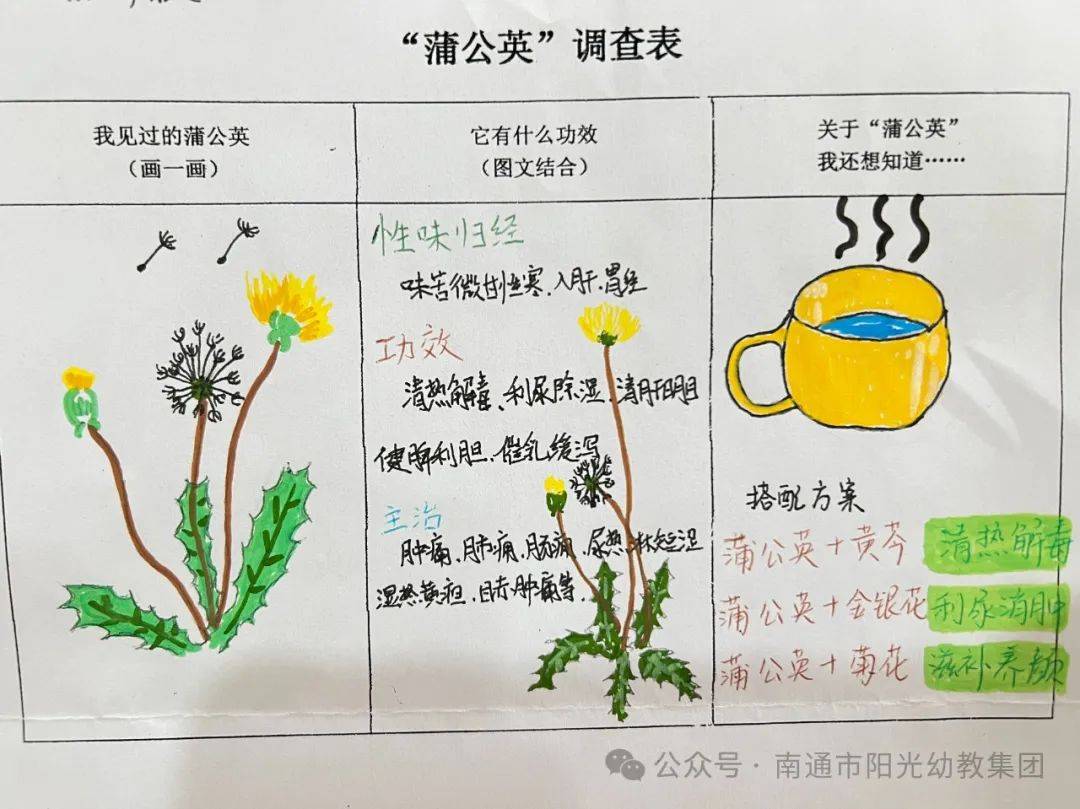 “蒲公英”调查表
我见过的蒲公英
（画一画）
它有什么功效
（图文结合）
关于“蒲公英”
我还想知道……
性味归经
味苦微甘性寒、入肝、胃经
功效
清热解毒、利尿除湿、清肝明目
健脾利胆、催乳缓泻
主治
肿痛、肺痈、肠痈、尿热
湿热黄疸、目赤肿痛等、
搭配方案
蒲公英+黄芩 清热解毒
蒲公英+金银花 利尿消肿
蒲公英+菊花 滋补养颜
公众号·南通市阳光幼教集团